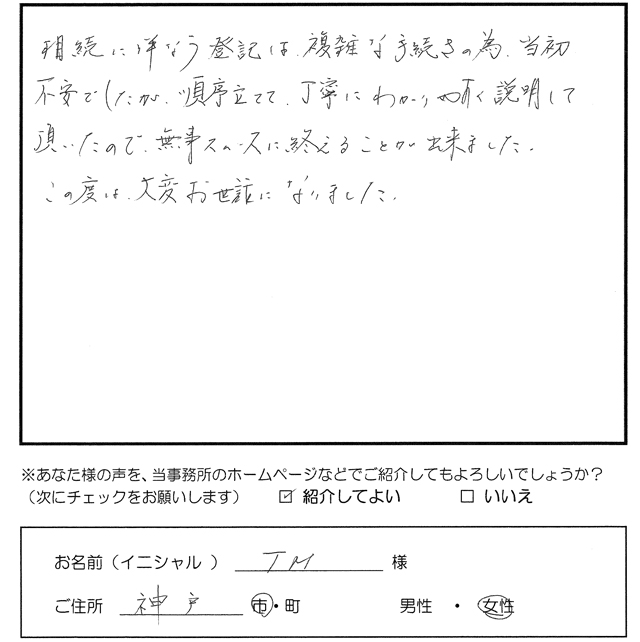 相続に伴なう登記は、複雑な手続きの為、当初
不安でしたが、順序立てて、丁寧にわかり易く説明して
頂いたので、無事スムーズに終えることが出来ました。
この度は、大変お世話になりました。
※あなた様の声を、当事務所のホームページなどでご紹介してもよろしいでしょうか？
（次にチェックをお願いします） ☑ 紹介してよい □ いいえ
お名前（イニシャル ） T M 様
ご住所 神戸 市・町 男性 ・ 女性